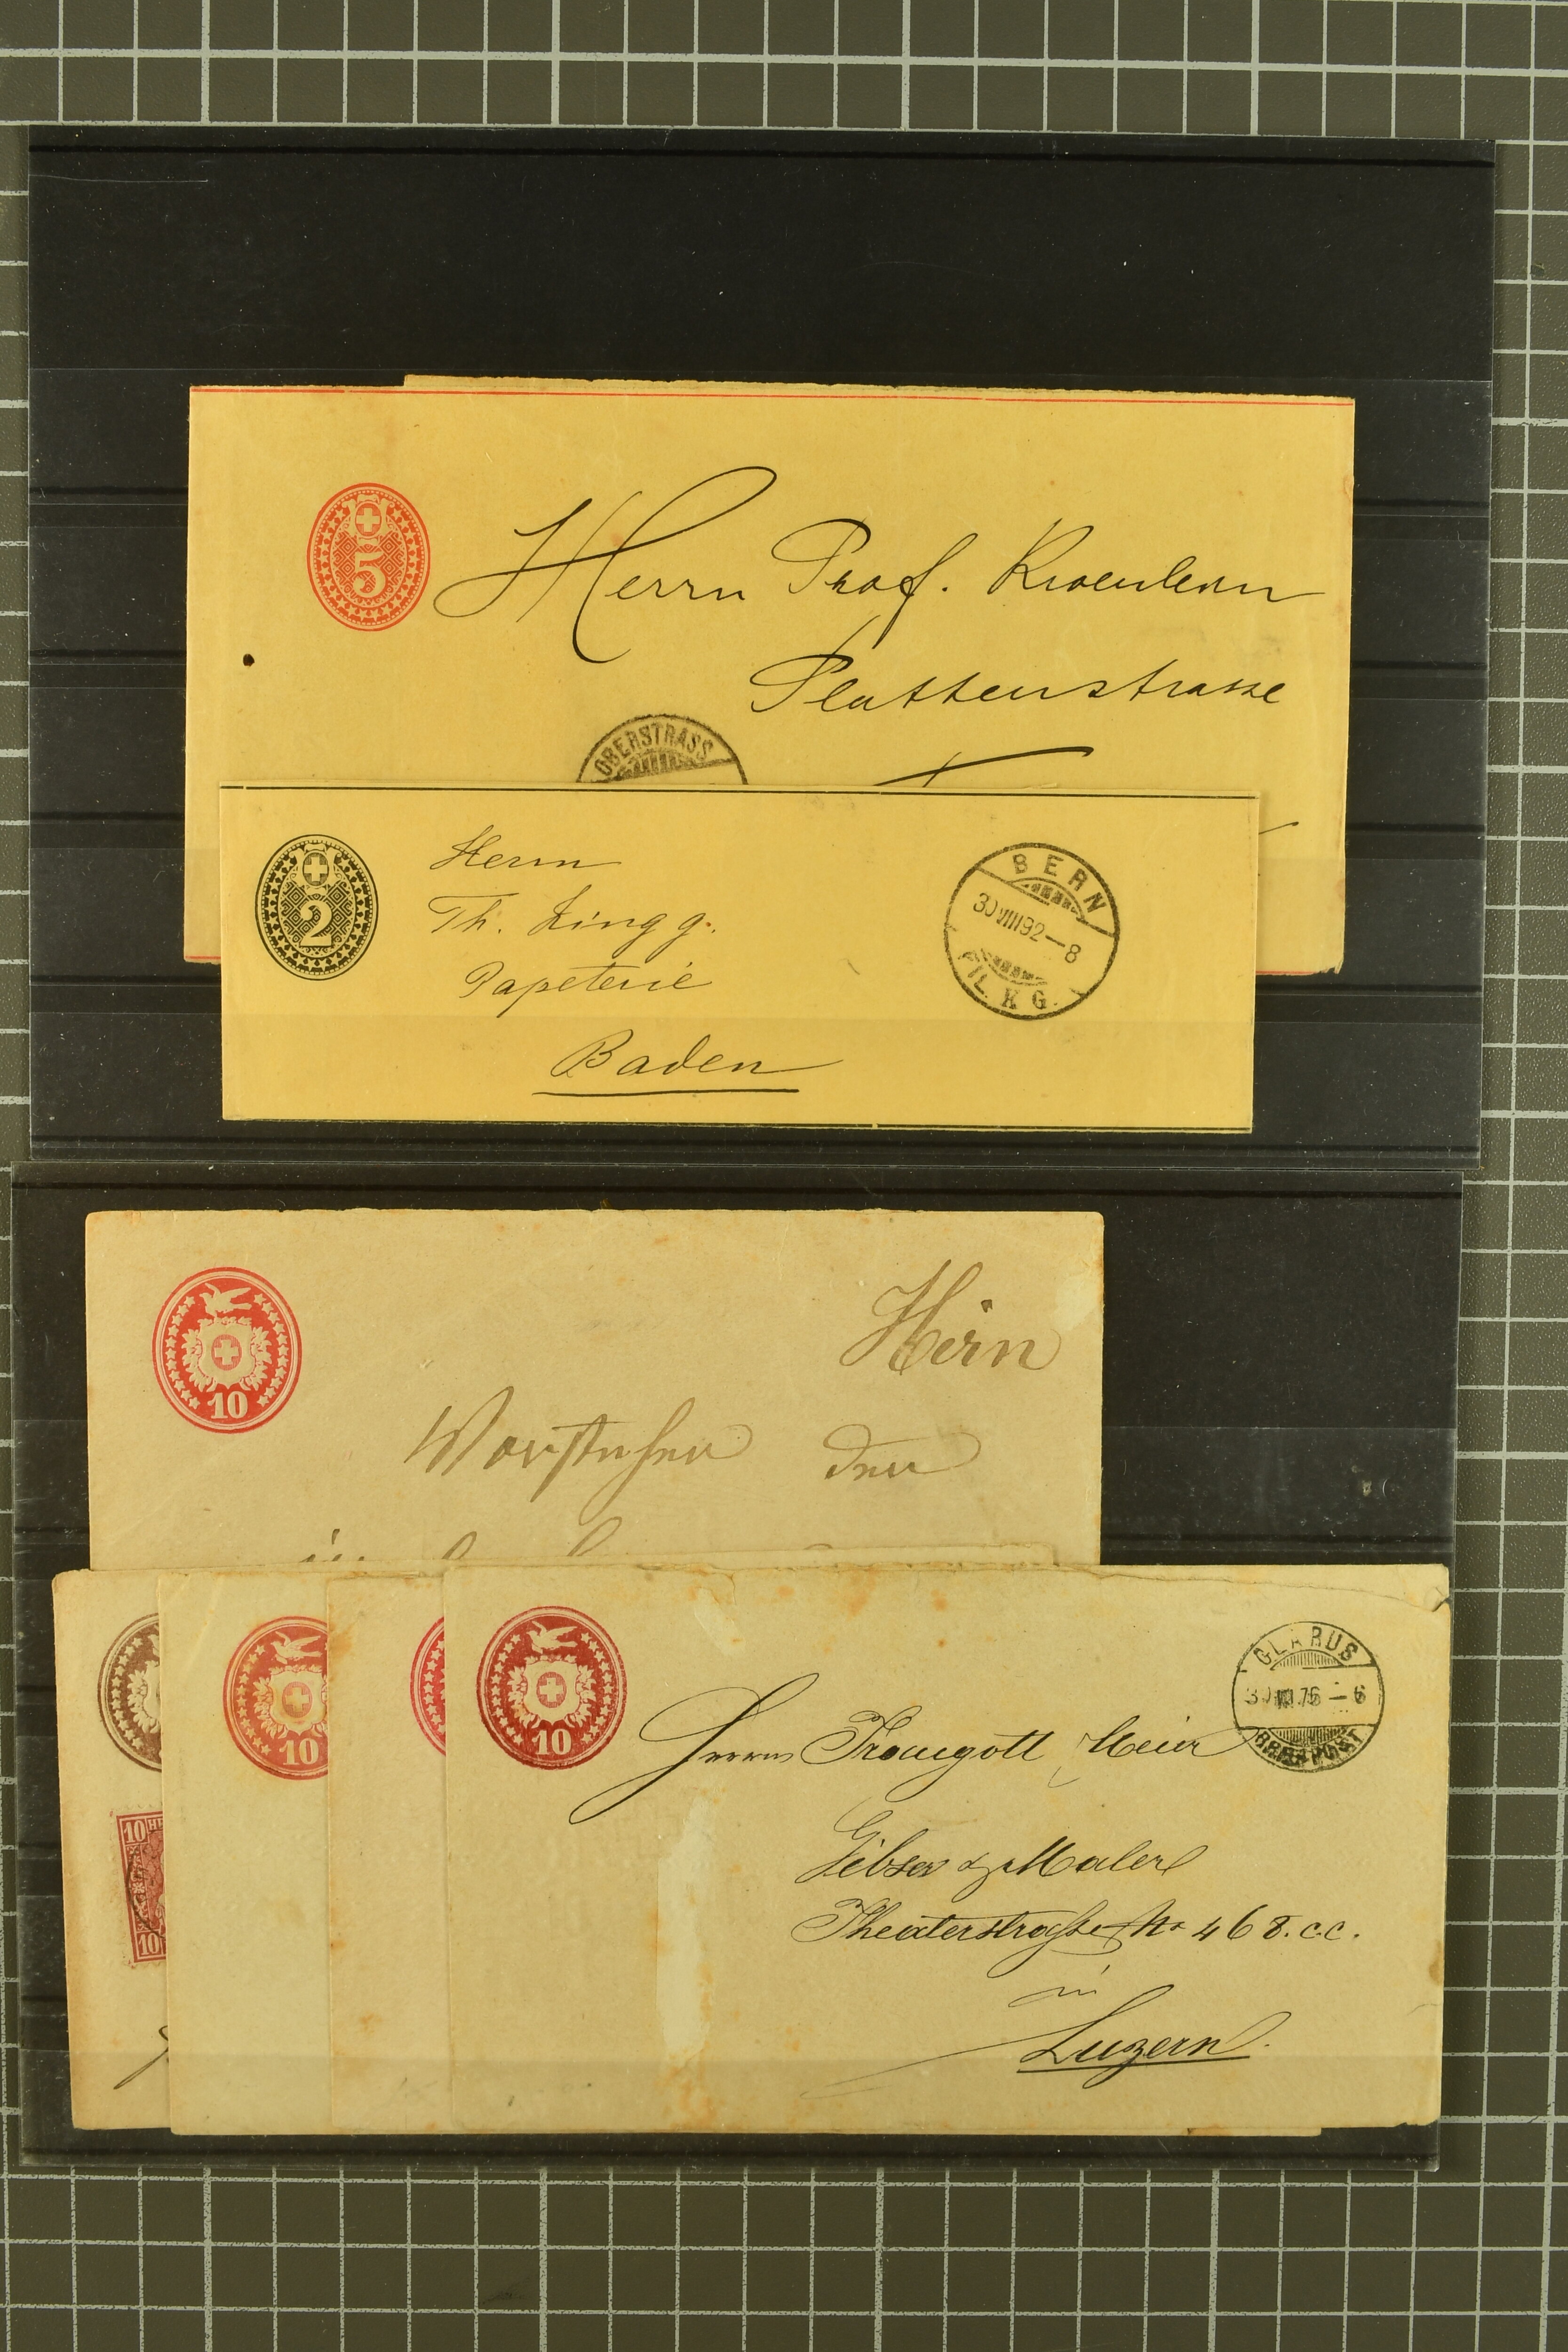 5
Herrn Prof.
Plattenstrasse
OBERSTRASS
2
Herrn
Th. Zingg.
Papeterie
Baden
BERN
30 VIII 92-8
FIL. K G.
10
Herrn
Vorsteher der
10
10
10
10
GLARUS
76 - 6
Herrn Traugott Meier
Gibser & Maler
Theaterstrasse No 468.c.c.
in
Luzern.